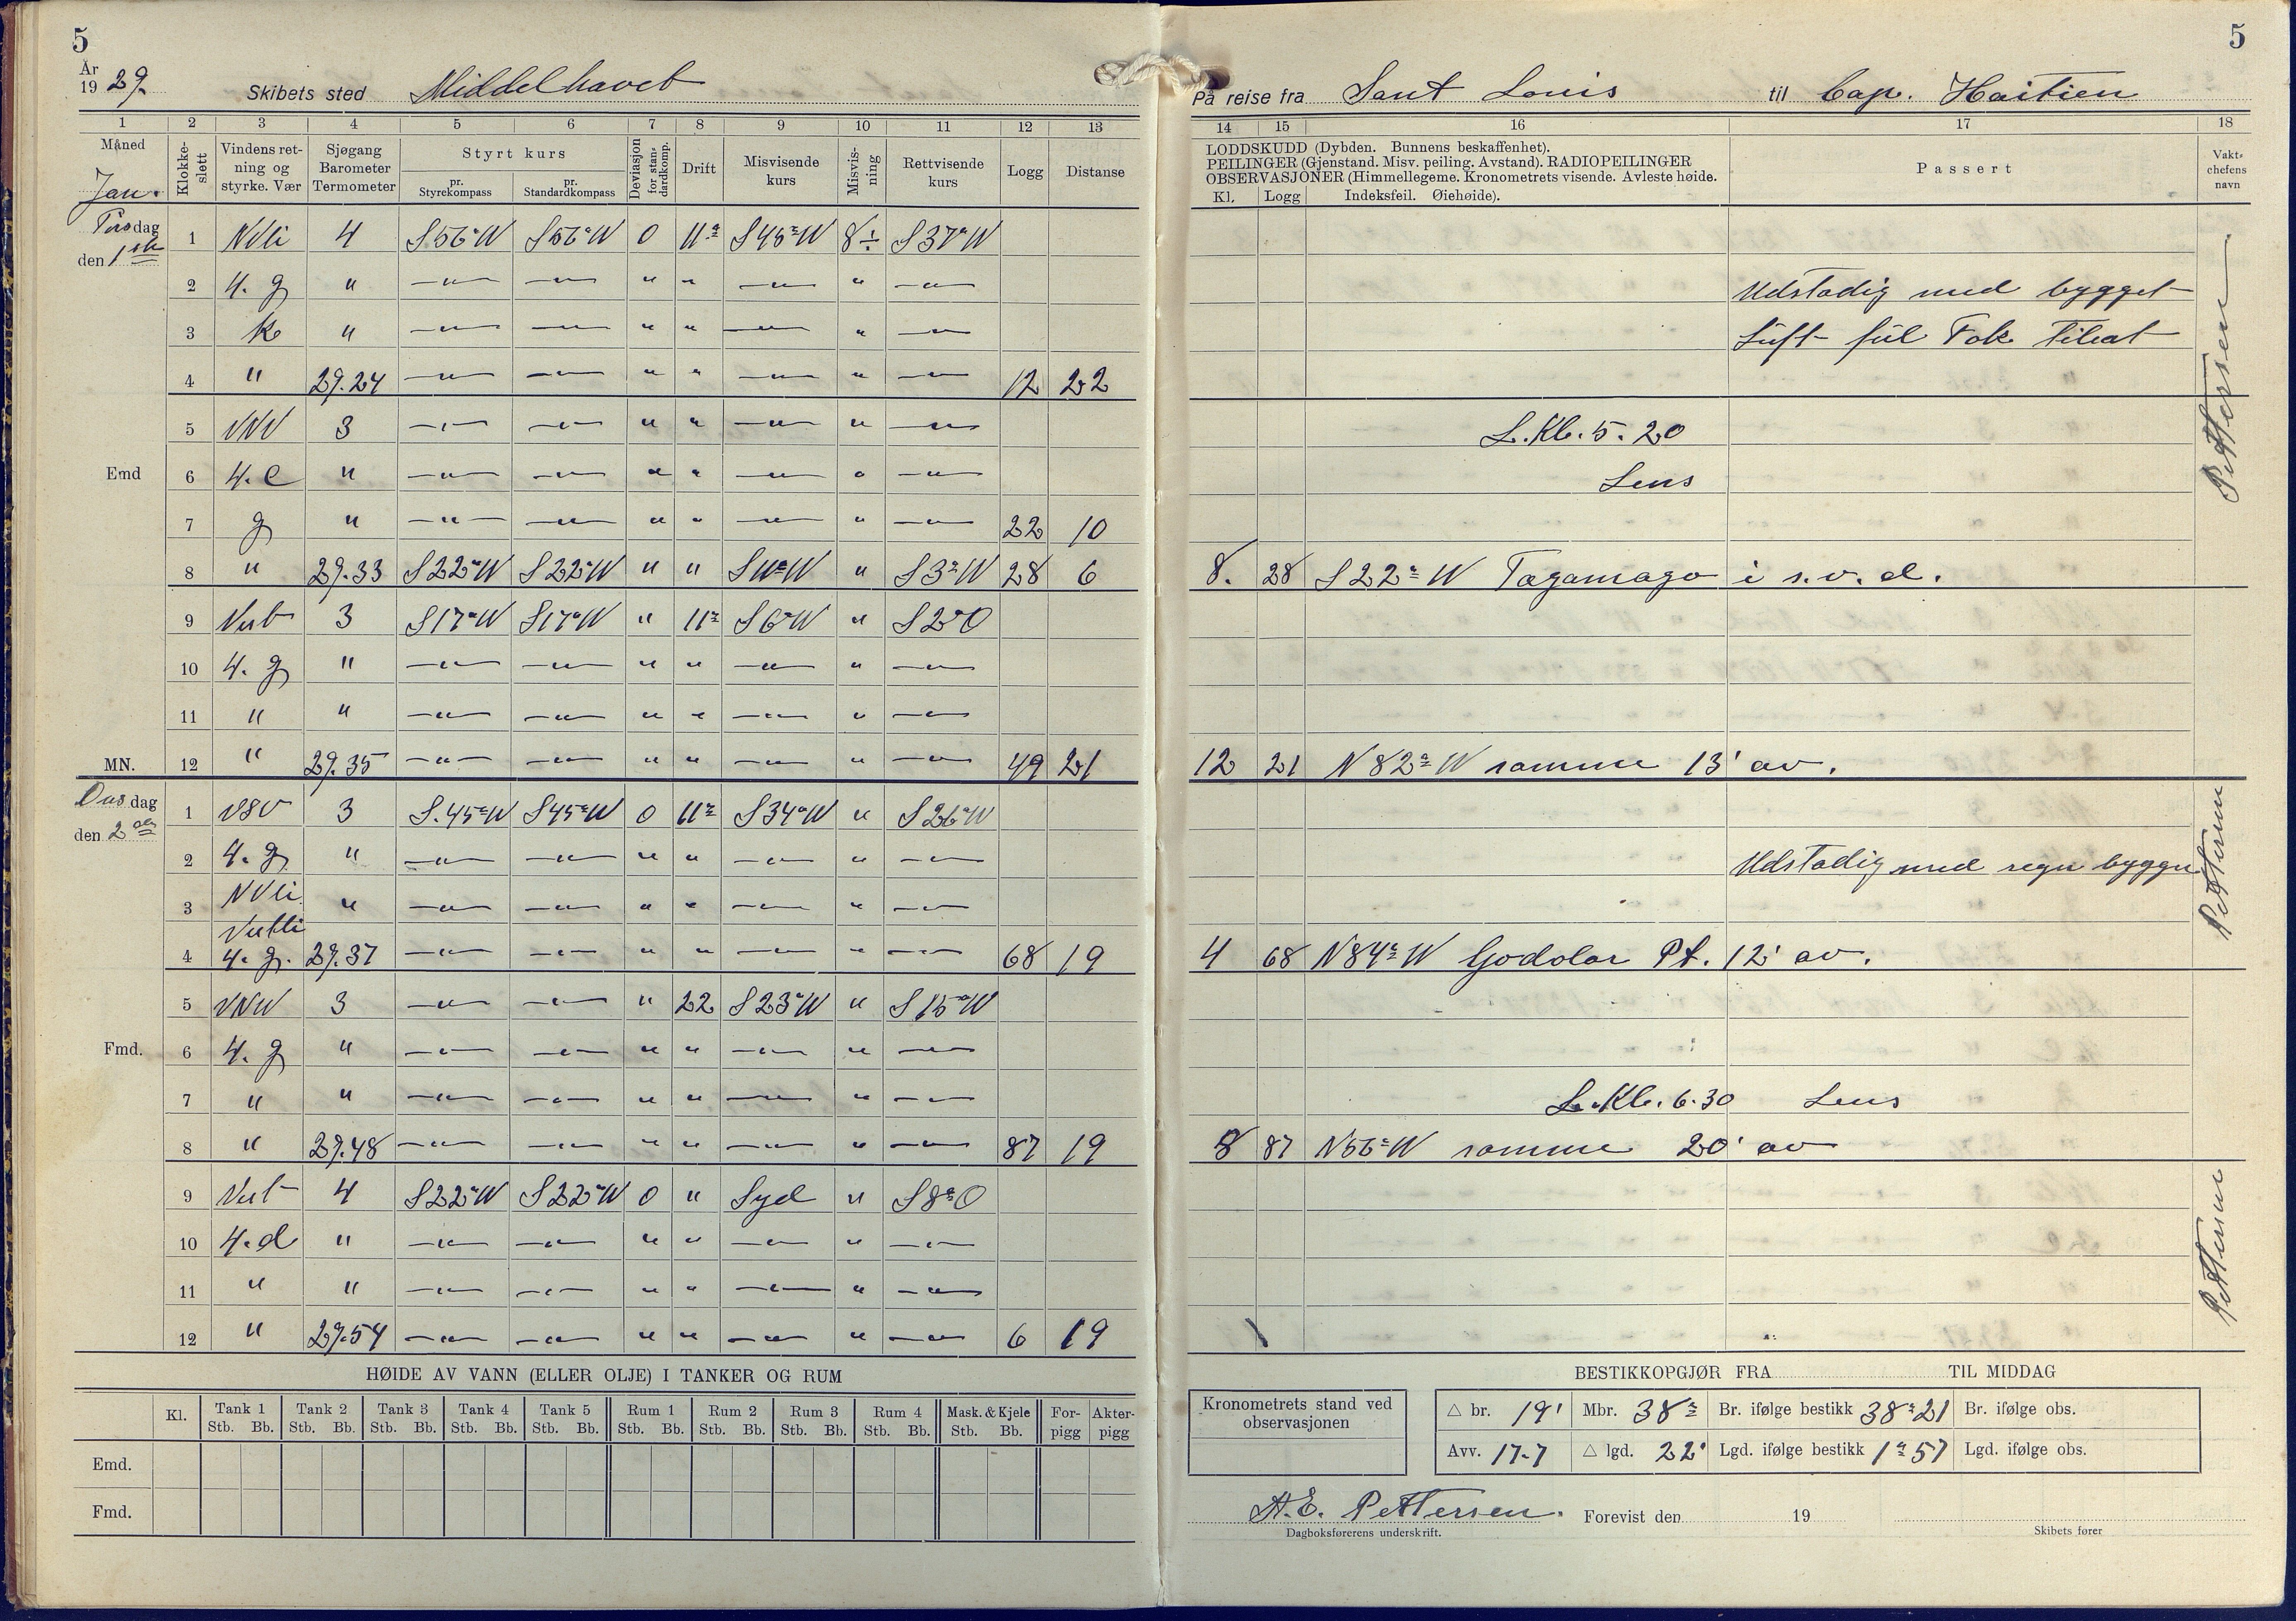 5
År
19 29.
Skibets sted Middelhavet
1 2 3 4 5 6 7 8 9 10 11 12 13
Måned Jan.
Klokke-slett
Vindens ret-ning og styrke. Vær
Sjøgang Barometer Termometer
Styrt kurs
pr. Styrekompass
pr. Standardkompass
Deviasjon for stan-dardkomp.
Drift
Misvisende kurs
Misvis-ning
Rettvisende kurs
Logg
Distanse
Tirsdag den 1ste
1 NVli 4 S56°W S56°W 0 11° S45°W 8÷ S37°W
2 4. g " —"— —"— " " —"— " —"—
3 k " —"— —"— " " —"— " —"—
4 " 29.24 —"— —"— " " —"— " —"— 12 22
5 VNV 3 —"— —"— " " —"— " —"—
Emd 6 4. e " —"— —"— " " —"— " —"—
7 g " —"— —"— " " —"— " —"— 22 10
8 " 29.33 S22°W S22°W " " S11°W " S3°W 28 6
9 Vest 3 S17°W S17°W " 11° S6°W " S2°O
10 4. g " —"— —"— " " —"— " —"—
11 " " —"— —"— " " —"— " —"—
MN. 12 " 29.35 —"— —"— " " —"— " —"— 49 21
Onsdag den 2den
1 VSV 3 S.45°W S45°W 0 11° S34°W " S26°W
2 4. g. " —"— —"— " " —"— " —"—
3 NVli " —"— —"— " " —"— " —"—
Vestli
4 4. g. 29.37 —"— —"— " " —"— " —"— 68 19
5 VNV 3 —"— —"— " 22 S23°W " S15°W
Fmd. 6 4. g " —"— —"— " " —"— " —"—
7 " " —"— —"— " " —"— " —"—
8 " 29.48 —"— —"— " " —"— " —"— 87 19
9 Vest 4 S22°W S22°W 0 " Syd " S8°O
10 4. d " —"— —"— " " —"— " —"—
11 " " —"— —"— " " —"— " —"—
12 " 29.54 —"— —"— " " —"— " —"— 6 19
HØIDE AV VANN (ELLER OLJE) I TANKER OG RUM
Kl. Tank 1 Tank 2 Tank 3 Tank 4 Tank 5 Rum 1 Rum 2 Rum 3 Rum 4 Mask. & Kjele For-pigg Akter-pigg
Stb. Bb. Stb. Bb. Stb. Bb. Stb. Bb. Stb. Bb. Stb. Bb. Stb. Bb. Stb. Bb. Stb. Bb. Stb. Bb.
Emd.
Fmd.
5
På reise fra Sant Louis til Cap. Haitien
14 15 16 17 18
LODDSKUDD (Dybden. Bunnens beskaffenhet).
PEILINGER (Gjenstand. Misv. peiling. Avstand). RADIOPEILINGER
OBSERVASJONER (Himmellegeme. Kronometrets visende. Avleste høide.
Kl. Logg Indeksfeil. Øiehøide).
Passert
Vakt-chefens navn
Udstadig med bygget
Luft Tok
L. Kl. 5. 20
Lens
Pettersen
8. 28 S22°W Tagamago i s. v. d.
12 21 N82°W samme 13' av.
Udstadig med regn bygger
Pettersen
4 68 N84°W Godolar Pt. 12' av.
L. Kl. 6.30 Lens
8 87 N56°W samme 20' av
Pettersen
BESTIKKOPGJØR FRA TIL MIDDAG
Kronometrets stand ved observasjonen
△ br. 19' Mbr. 38° Br. ifølge bestikk 38°21 Br. ifølge obs.
Avv. 17.7 △ lgd. 22' Lgd. ifølge bestikk 1°57 Lgd. ifølge obs.
A. E. Pettersen. Forevist den 19
Dagboksførerens underskrift. Skibets fører